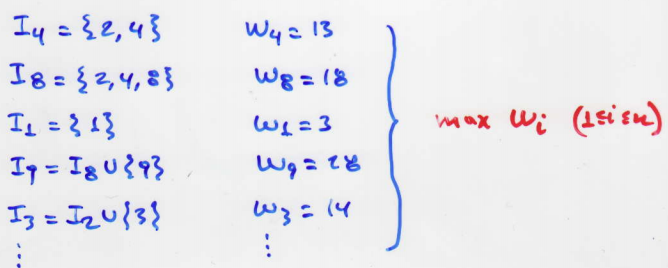 I₄ = {2,4} W₄ = 13
I₈ = {2,4,8} W₈ = 18
I₁ = {1} W₁ = 3
I₉ = I₈ ∪ {9} W₉ = 28
I₃ = I₂ ∪ {3} W₃ = 14
⋮ ⋮
max Wᵢ (1≤i≤n)